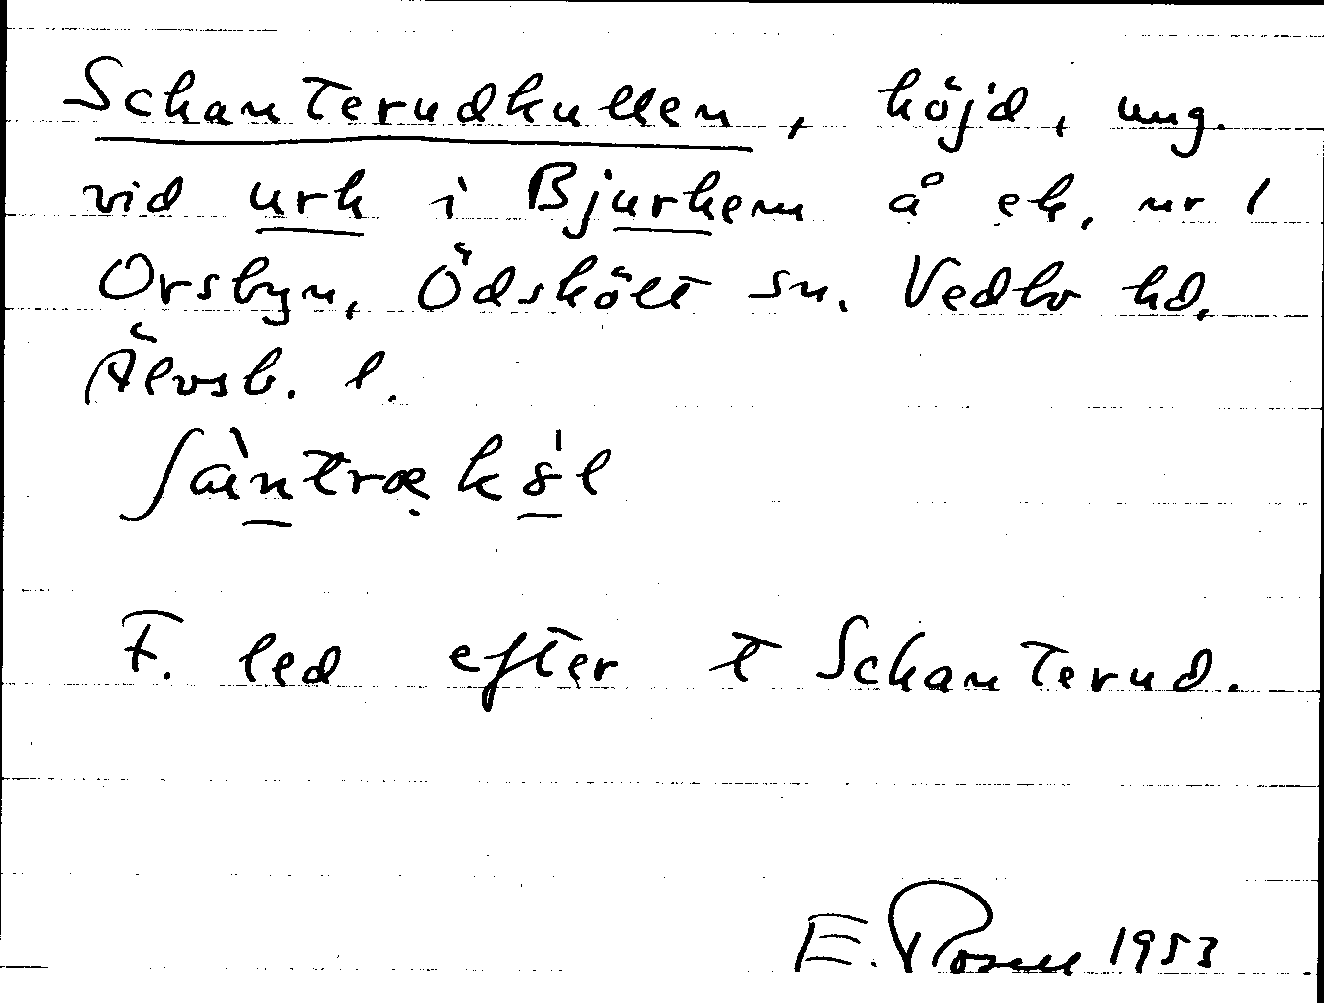 Schanterudkullen, höjd, ung.
vid urk i Bjurkem å ek. nr 1
Orsbyn, Ödskölt sn. Vedbo hd.
Älvsb. l.
F. led efter t Schanterud.
E. Rosell 1953